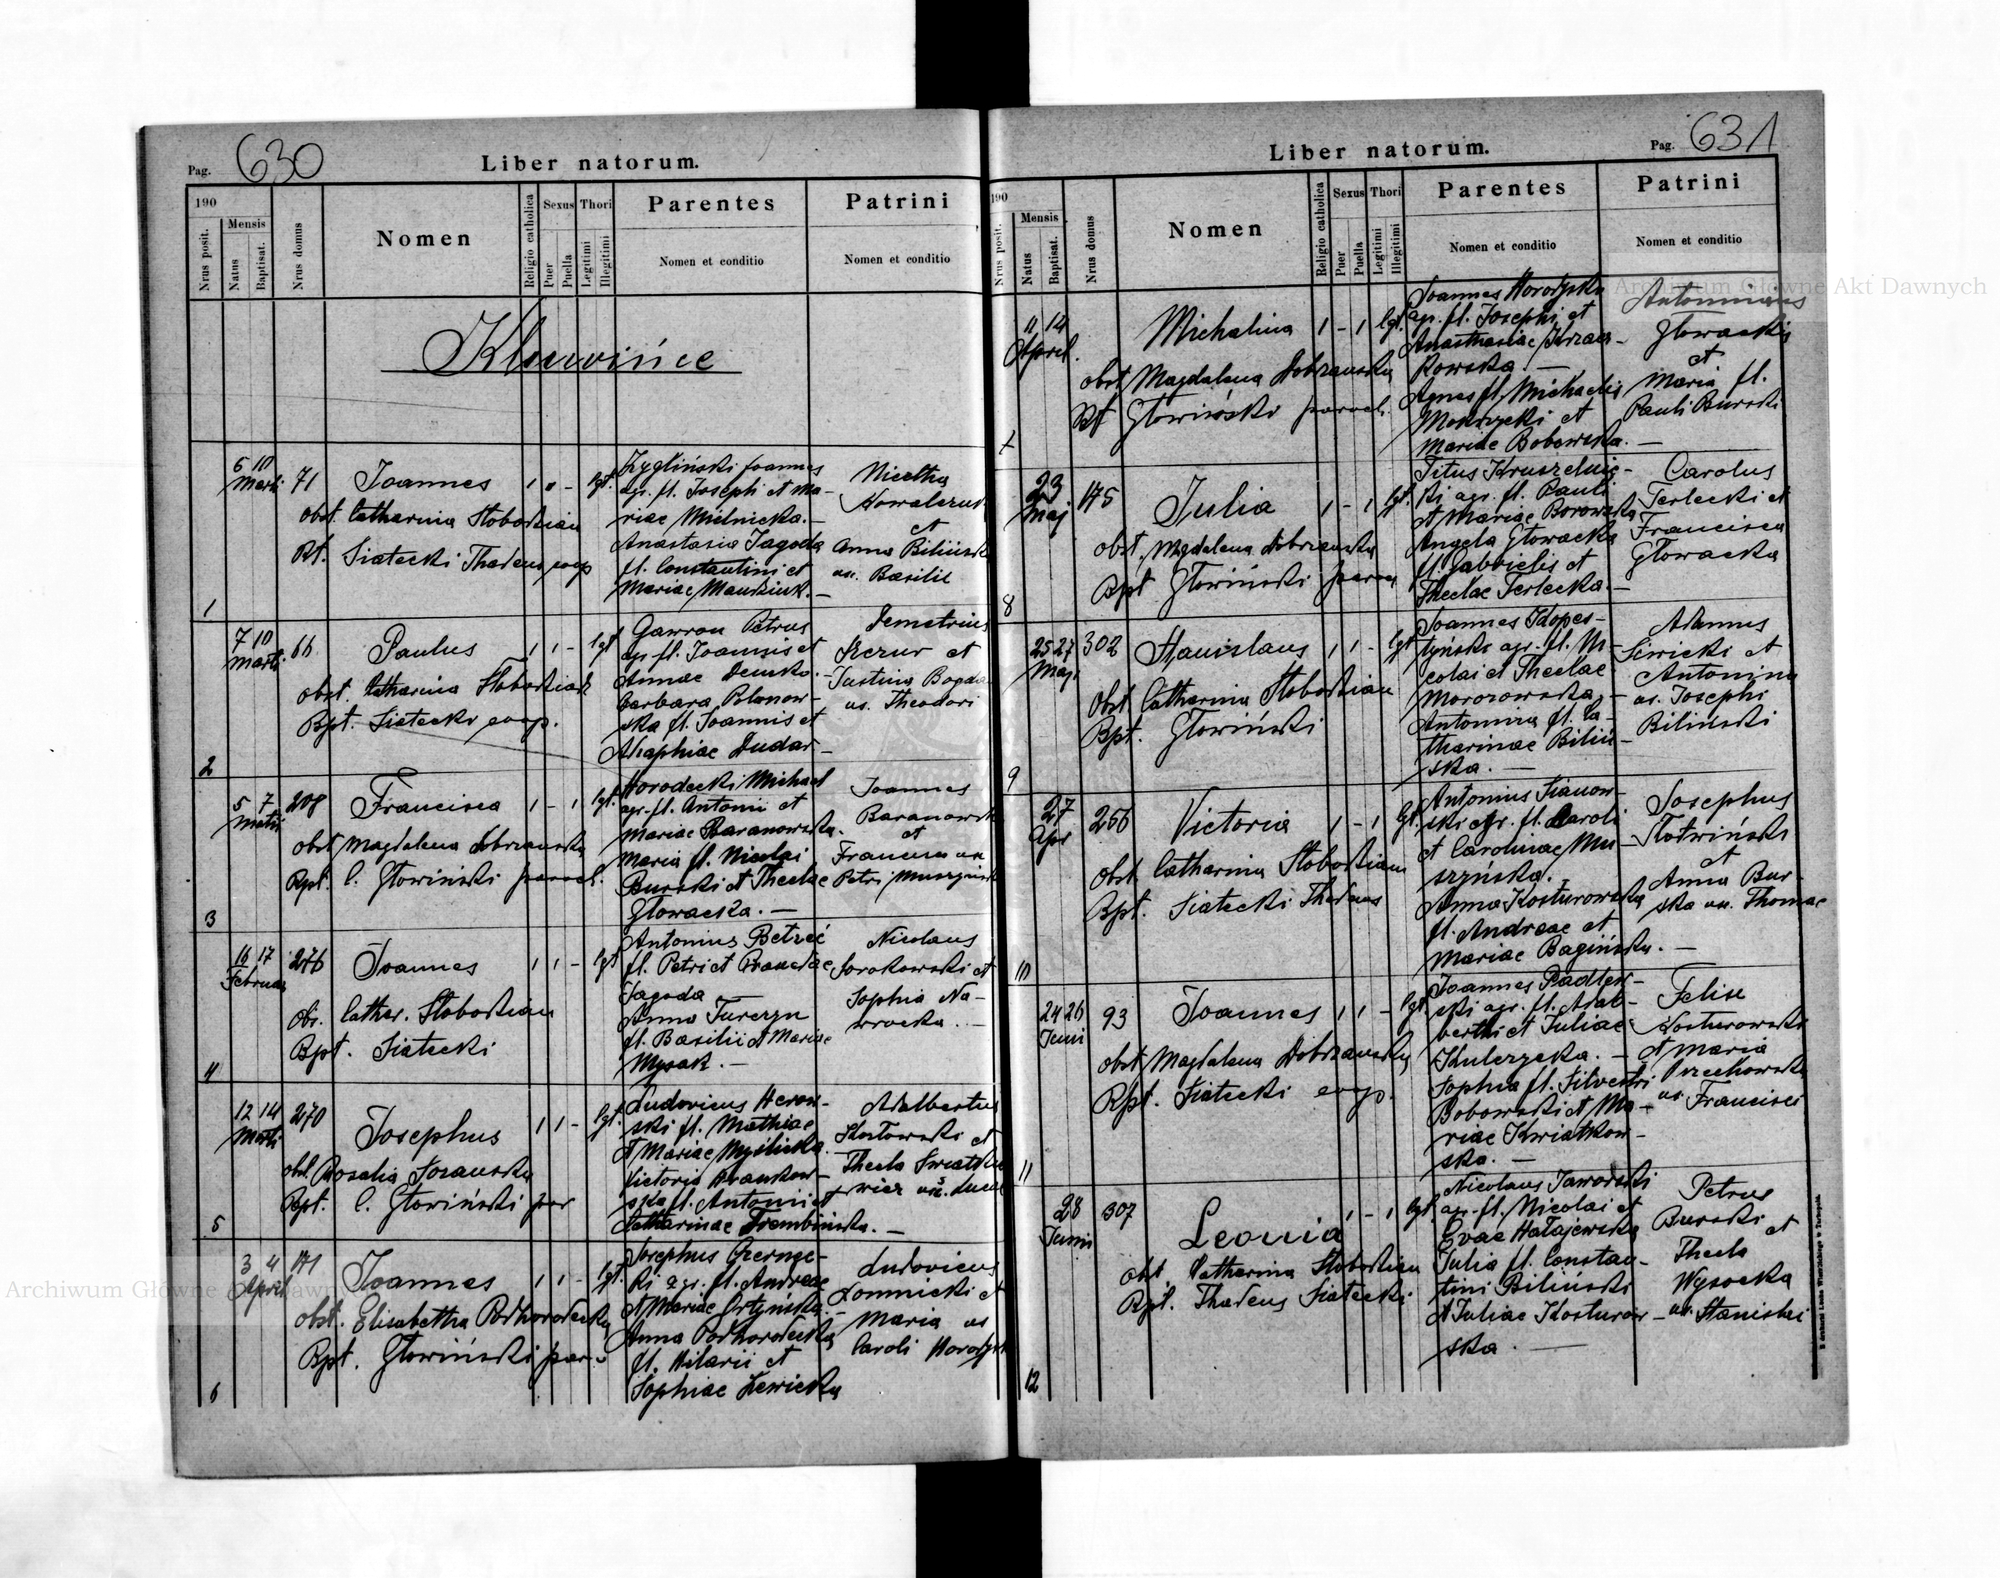 Pag. 630
Liber natorum.
190
Nrus posit.
Mensis
Natus
Baptisat.
Nrus domus
Nomen
Religio catholica
Sexus
Puer
Puella
Thori
Legitimi
Illegitimi
Parentes
Nomen et conditio
Patrini
Nomen et conditio
Kluwińce
1
6 10
Marti
71
Joannes
1
lgt.
obst. Catharina Slobodzian
Bt. Siatecki Thadeus coop
Zygliński Joannes
agr. fl. Josephi et Ma-
riae Mielnicka.-
Anastasia Jagoda
fl. Constantini et
Mariae
Nicetha
et
Anna Bilińska
ux. Basilii
2
7 10
Marti
66
Paulus
1 1 -
lgt
obst. Catharina Slobodzian
Bpt. Siatecki coop.
Gawron Petrus
agr. fl. Joannis et
Annae
Barbara Polonow-
ska fl. Joannis et
Ahaphiae Dudar-
Demetrius
et
Justina Bogda
ux. Theodori
3
5 7
208
Francisca
1 - 1
lgt.
obst Magdalena Dobrzanska
Bpt. C. Głowiński paroch.
Horodecki Michael
agr. fl. Antonii et
Mariae Baranowska.
Maria fl. Nicolai
Burski et Theclae
Głowacka. -
Joannes
Baranowski
et
Francisca ux
Petri
4
16 17
Februar
276
Joannes
1 1 -
lgt
obs. Cather. Slobodzian
Bpt. Siatecki
Antonius
fl. Petri et
Jagoda -
Anna Tureczyn
fl. Basilii et Mariae
Mysak. -
Nicolaus
Sorokowski et
Sophia Na-
wrocka. -
5
12 14
Marti
270
Josephus
1 1 -
lgt.
obst. Rosalia
Bpt. C. Głowiński par
Ludovicus Herow-
ski fl. Mathiae
et Mariae Myślicka.
Victoria
ska fl. Antonii et
Catharinae Trembińska. -
Adalbertus
Kozłowski et
Thecla
6
3 4
April
171
Joannes
1 1 -
lgt.
obst. Elisabetha Podhorodecka
Bpt. Głowiński par.
Josephus Czerne-
ki agr. fl. Andreae
et Mariae Ortyńska.-
Anna Podhorodecka
fl. Hilarii et
Sophiae Lewicka
Ludovicus
Łomnicki et
Maria ux
Caroli Horodysk
Pag. 631
Liber natorum.
190
Nrus posit.
Mensis
Natus
Baptisat.
Nrus domus
Nomen
Religio catholica
Sexus
Puer
Puella
Thori
Legitimi
Illegitimi
Parentes
Nomen et conditio
Patrini
Nomen et conditio
7
11 14
April.
Michalina
1 - 1
lgt.
obst Magdalena Dobrzanska
Bt Głowiński paroch.
Joannes Horodysky
agr. fl. Josephi et
Anastasiae
kowska. -
Agnes fl. Michaelis
Mokrzycki et
Mariae Bobowska. -
Antoninus
Głowacki
et
Maria fl.
Pauli Burski
8
23
Maj
175
Julia
1 - 1
lgt.
obst. Magdalena Dobrzanska
Bpt Głowiński paroch
Titus Kruszelnic-
ki agr. fl. Pauli
et Mariae Borowska
Angela Głowacka
fl. Gabrielis et
Theclae Terlecka. -
Carolus
Terlecki et
Francisca
Głowacka
9
25 27
Maji
302
Stanislaus
1 1 -
lgt
obst. Catharina Slobodzian
Bpt. Głowiński
Joannes Klopes-
tyński agr. fl. Ni-
colai et Theclae
Morozowska, -
Antonina fl. Ca-
tharinae Biliń-
ska. -
Adamus
Siwicki et
Antonina
ux. Josephi
Biliński
10
27
Apr
256
Victoria
1 - 1
lgt.
obst. Catharina Slobodzian
Bpt. Siatecki Thadeus
Antonius Sianow-
ski agr. fl. Caroli
et Carolinae Mu-
szyńska.
Anna Kosturowska
fl. Andreae et
Mariae Bagińska. -
Josephus
Słotwiński
et
Anna Bur-
ska ux. Thomae
11
24 26
Juni
93
Joannes
1 1 -
lgt.
obst Magdalena Dobrzanska
Bpt. Siatecki coop.
Joannes Radlew-
ski agr. fl. Adal-
berthi et Juliae
Kulczycka. -
Sophia fl. Silvestri
Bobowski et Ma-
riae Kwiatkow-
ska. -
Felix
Kosturowski
et Maria
Orzechowska
ux. Francisci
12
28
Juni
307
Leonia
1 - 1
lgt.
obst. Catharina Slobodzian
Bpt. Thadeus Siatecki
Nicolaus Jaworski
agr. fl. Nicolai et
Evae Hałajewska
Julia fl. Constan-
tini Biliński
et Juliae Kosturow-
ska. -
Petrus
Burski et
Thecla
Wysocka
ux. Stanislai
Archiwum Główne Akt Dawnych
Archiwum Główne Akt Dawnych